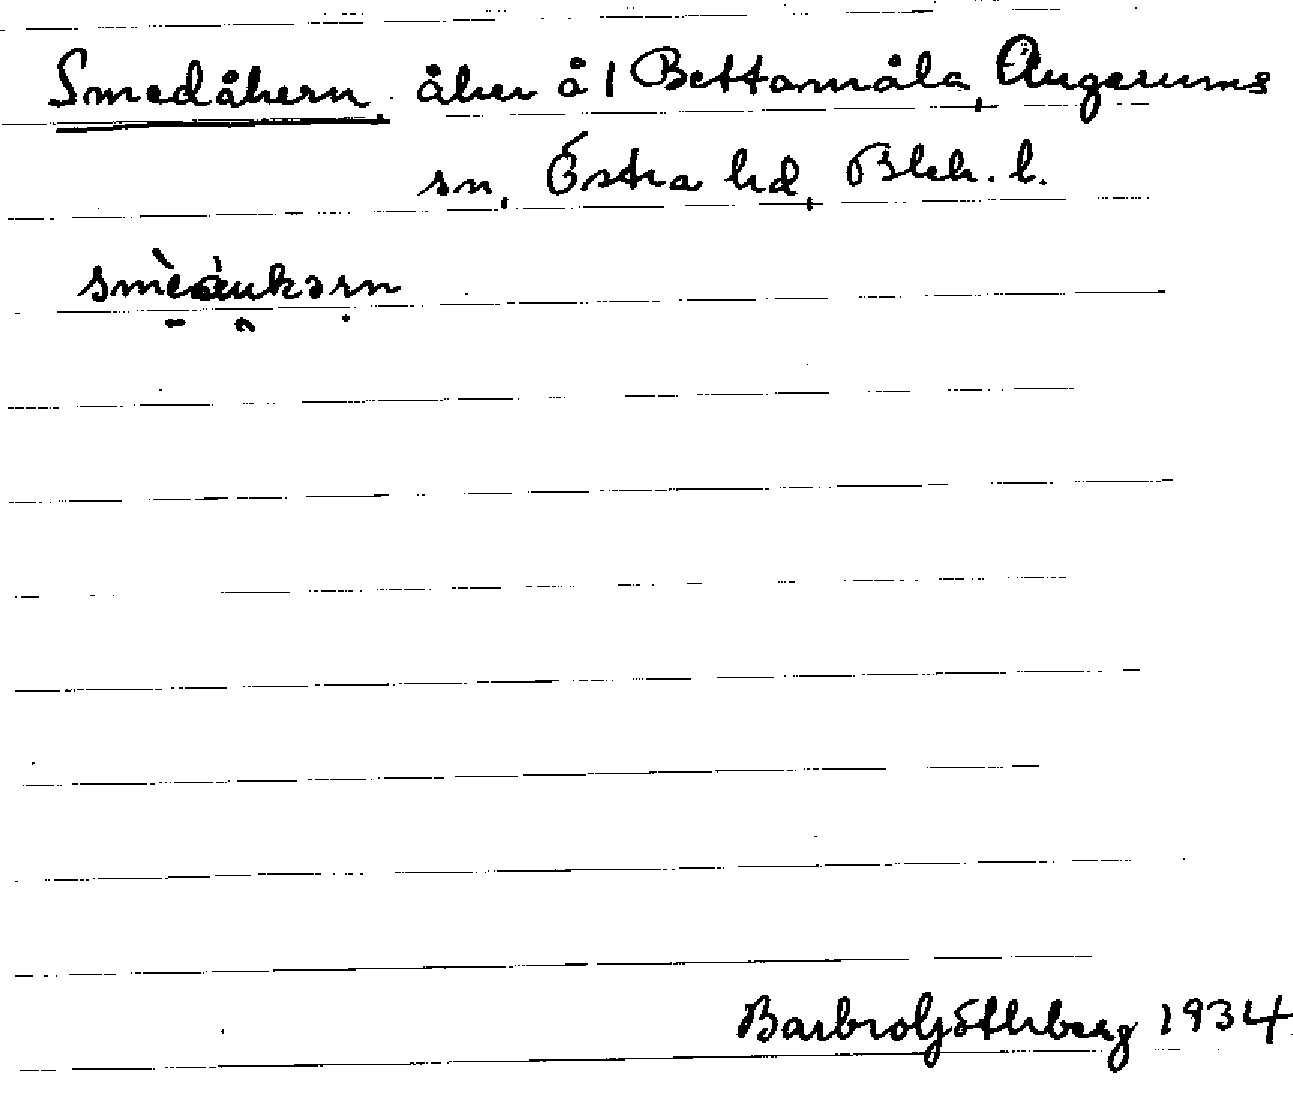 Smedåkern åker å 1 Bettamåla, Augerums
sn, Östra hd, Blek. l.
Barbro Göthberg 1934